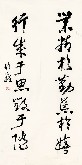 業精於勤荒於嬉
行成于思毀于隨